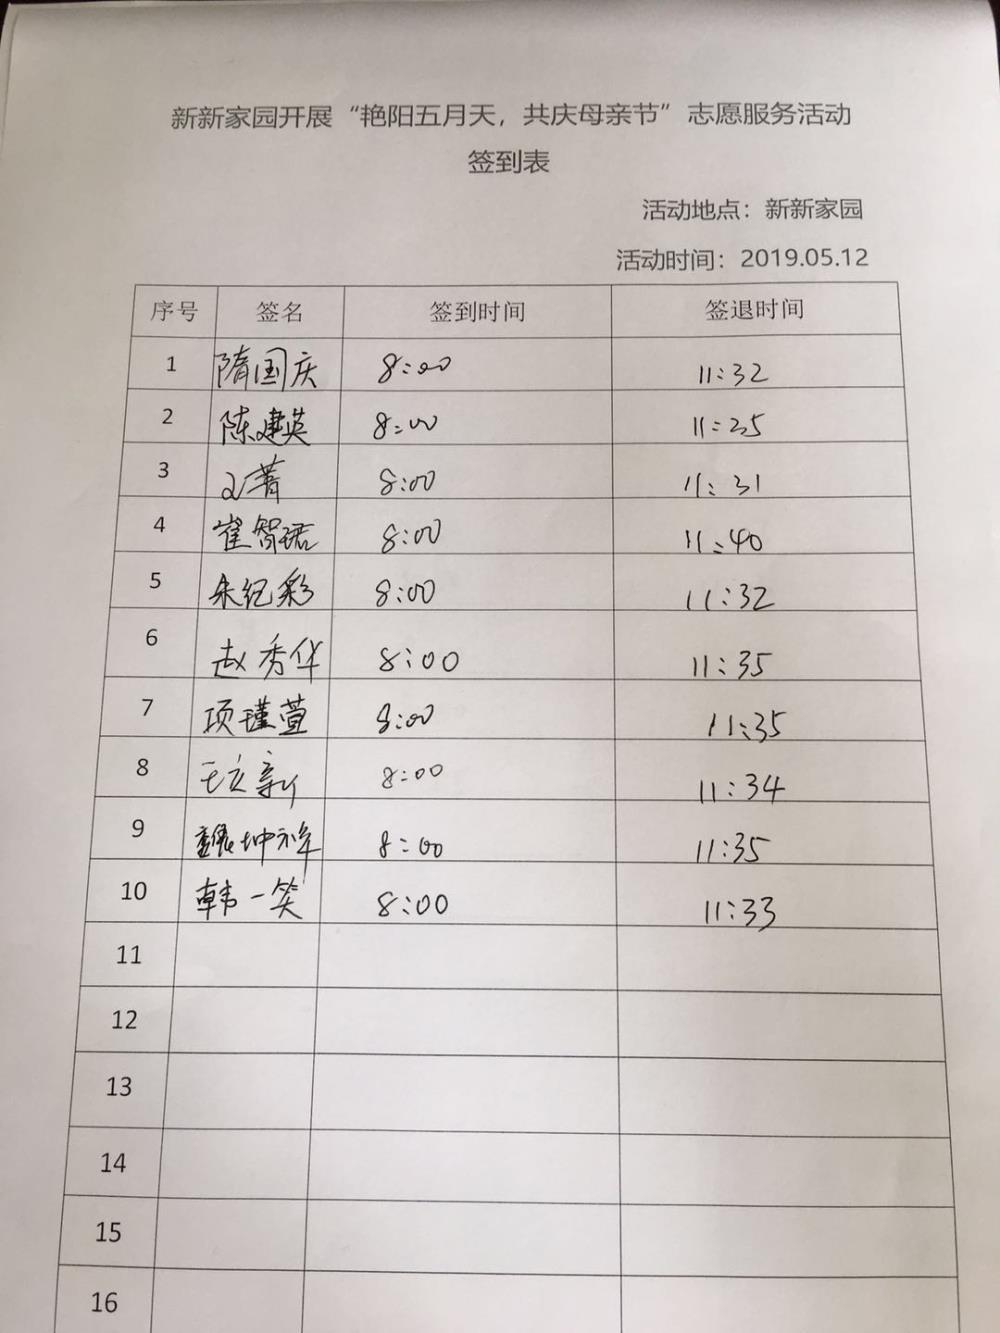 新新家园开展“艳阳五月天，共庆母亲节”志愿服务活动
签到表
活动地点：新新家园
活动时间：2019.05.12
序号 签名 签到时间 签退时间
1 隋国庆 8:00 11:32
2 陈建英 8:00 11:25
3 菁 8:00 11:31
4 崔智珺 8:00 11:40
5 朱纪彩 8:00 11:32
6 赵秀华 8:00 11:35
7 项瑾萱 8:00 11:35
8 王立新 8:00 11:34
9 坤祥 8:00 11:35
10 韩一笑 8:00 11:33
11
12
13
14
15
16